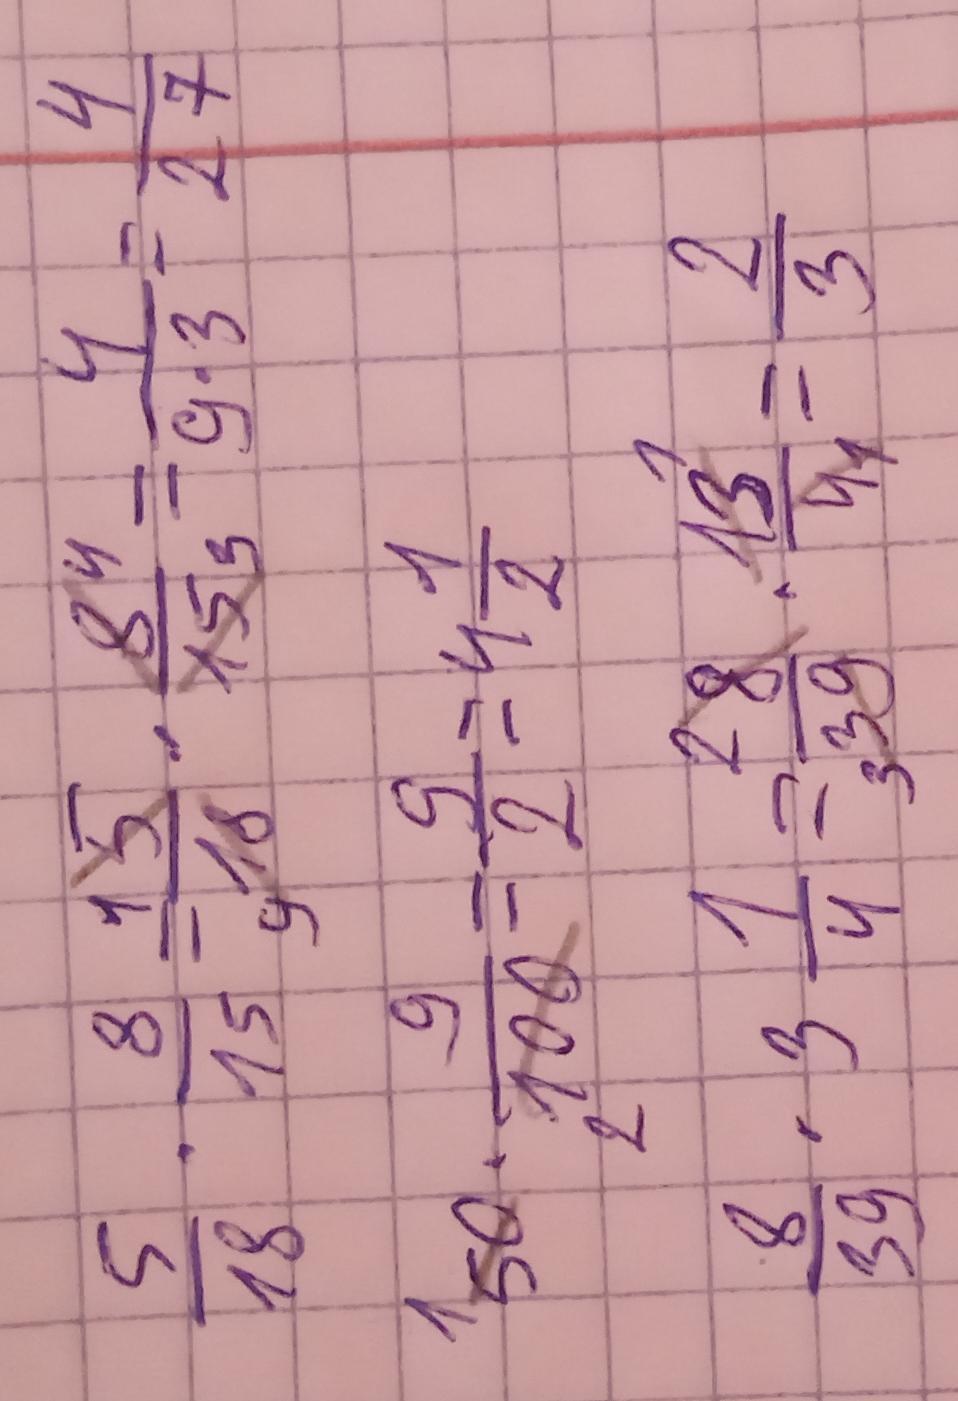 5/18 · 8/15 = ¹5/18₉ · 8⁴/15₃ = 4/9·3 = 4/27
¹50 · 9/100₂ = 9/2 = 4 1/2
8/39 · 3 1/4 = ²8/39₃ · 13¹/4₁ = 2/3